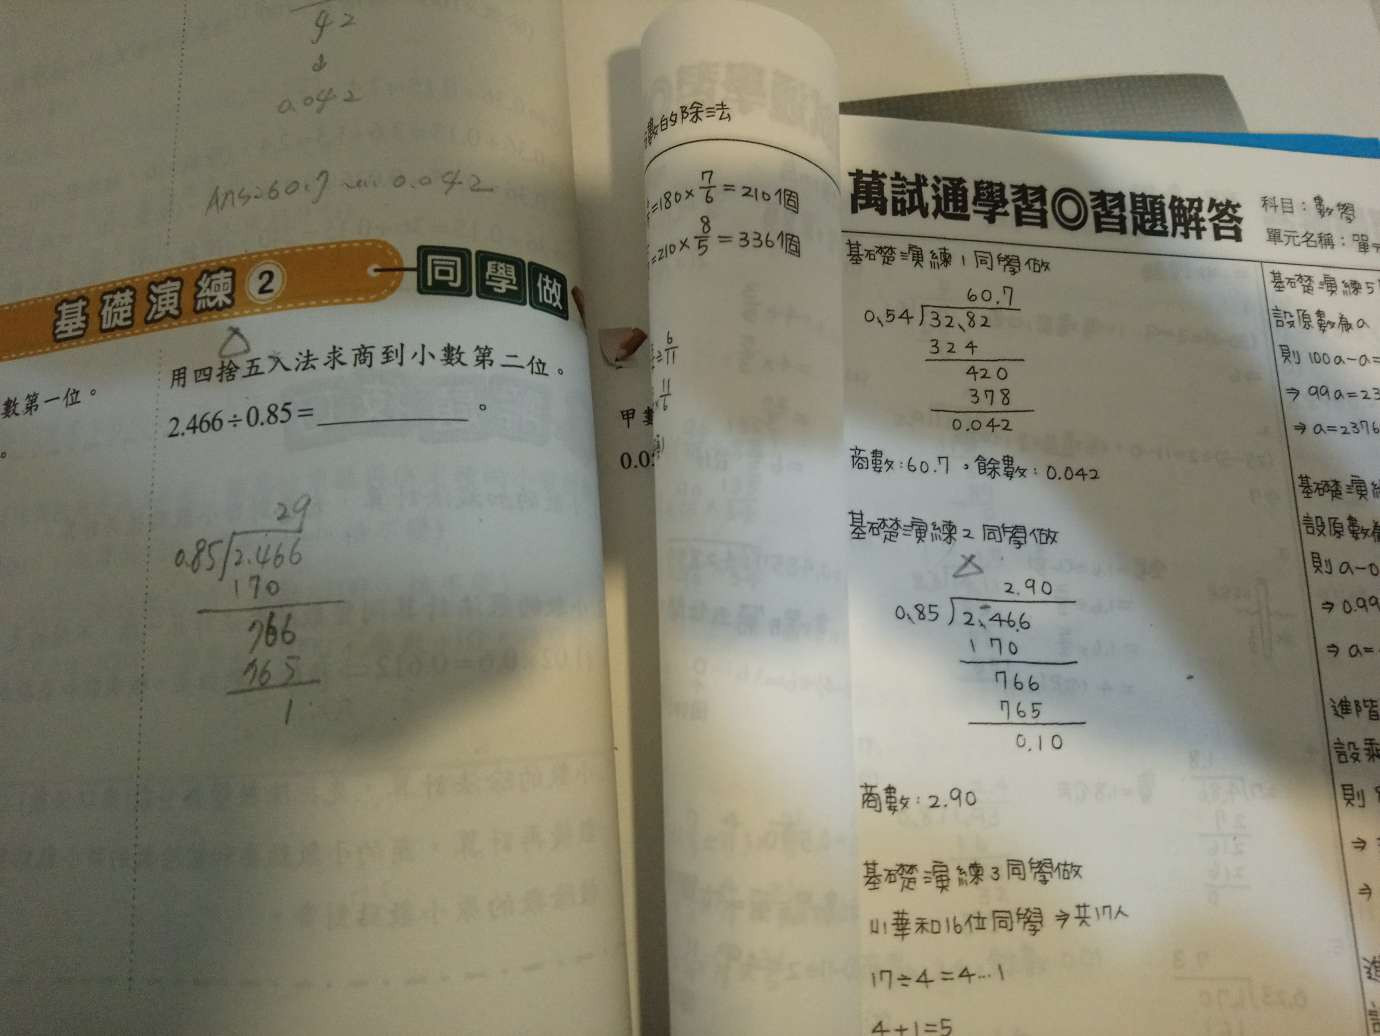 42
↓
0.042
Ans=60.7 ... 0.042
基礎演練2 同學做
用四捨五入法求商到小數第二位。
2.466÷0.85=________。
29
0.85 2.466
170
766
765
1
數第一位。
。
數的除法
=180×7/6=210個
=210×8/5=336個
6/11
11/6
甲
0.0
萬試通學習◎習題解答
科目:數學
單元名稱:單
基礎演練1同學做
60.7
0.54 32.82
324
420
378
0.042
商數:60.7，餘數:0.042
基礎演練2同學做
2.90
0.85 2.466
170
766
765
0.10
商數:2.90
基礎演練3同學做
小華和16位同學⇒共17人
17÷4=4…1
4+1=5
基礎演練5
設原數為a
則100a-a=
⇒99a=23
⇒a=2376
基礎演練
設原數為
則a-0
⇒0.99
⇒a=
進階
設乘
則
⇒
⇒